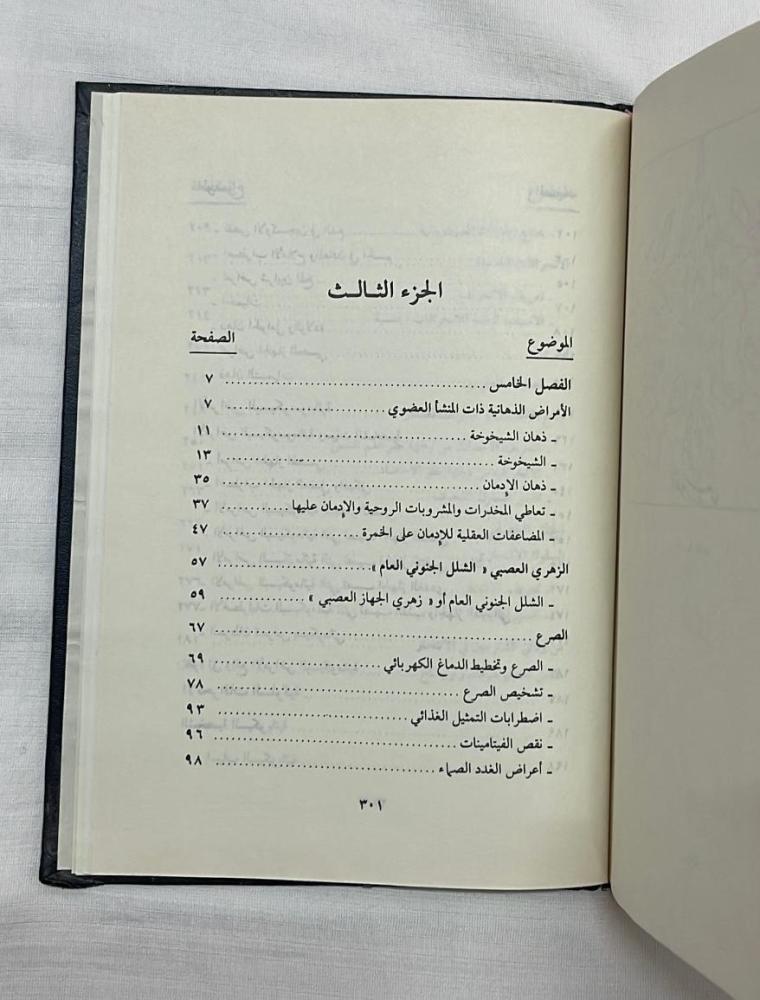 الجزء الثالث
الموضوع الصفحة
الفصل الخامس ........................ ٧
الأمراض الذهانية ذات المنشأ العضوي ........................ ٧
ـ ذهان الشيخوخة ........................ ١١
ـ الشيخوخة ........................ ١٣
ـ ذهان الإدمان ........................ ٣٥
ـ تعاطي المخدرات والمشروبات الروحية والإدمان عليها ........................ ٣٧
ـ المضاعفات العقلية للإدمان على الخمرة ........................ ٤٧
الزهري العصبي « الشلل الجنوني العام » ........................ ٥٧
ـ الشلل الجنوني العام أو « زهري الجهاز العصبي » ........................ ٥٩
الصرع ........................ ٦٧
ـ الصرع وتخطيط الدماغ الكهربائي ........................ ٦٩
ـ تشخيص الصرع ........................ ٧٨
ـ اضطرابات التمثيل الغذائي ........................ ٩٣
ـ نقص الفيتامينات ........................ ٩٦
ـ أعراض الغدد الصماء ........................ ٩٨
٣٠١